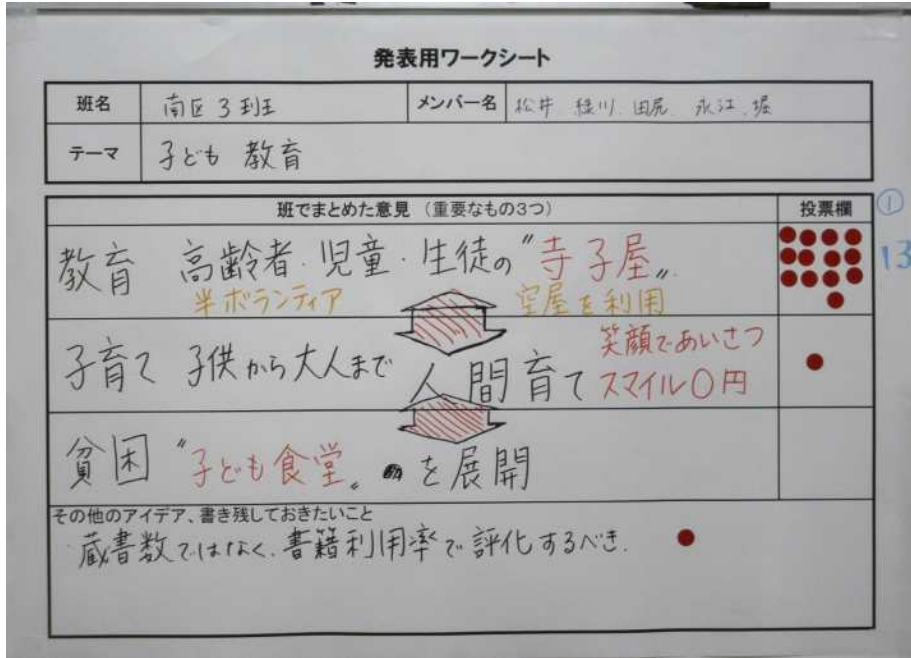 発表用ワークシート
班名 南区3班 メンバー名 松井 緑川 田尻 永江 堀
テーマ 子ども 教育
班でまとめた意見 (重要なもの3つ) 投票欄
①
教育 高齢者・児童・生徒の〝寺子屋〟
13
半ボランティア 空屋を利用
笑顔であいさつ
子育て 子供から大人まで 人間育て スマイル〇円
貧困〝子ども食堂〟を展開
その他のアイデア、書き残しておきたいこと
蔵書数ではなく、書籍利用率で評化するべき.